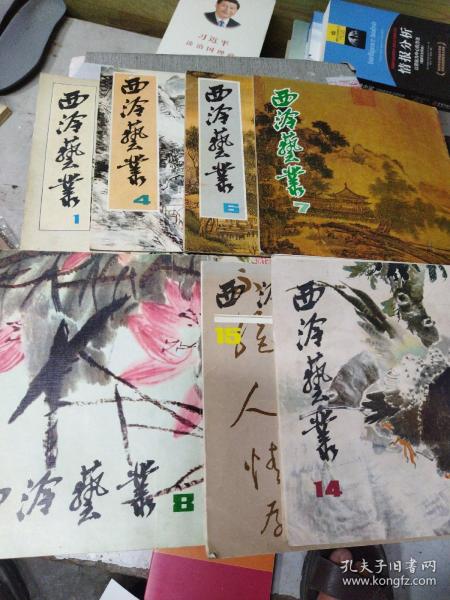 习近平
谈治国理政
Intelligence Analysis
情报分析
西泠藝叢
1
西泠藝叢
4
西泠藝叢
6
西泠藝叢
7
泠藝叢
8
西泠
15
人情存
西泠藝叢
14
孔夫子旧书网
www.kongfz.com